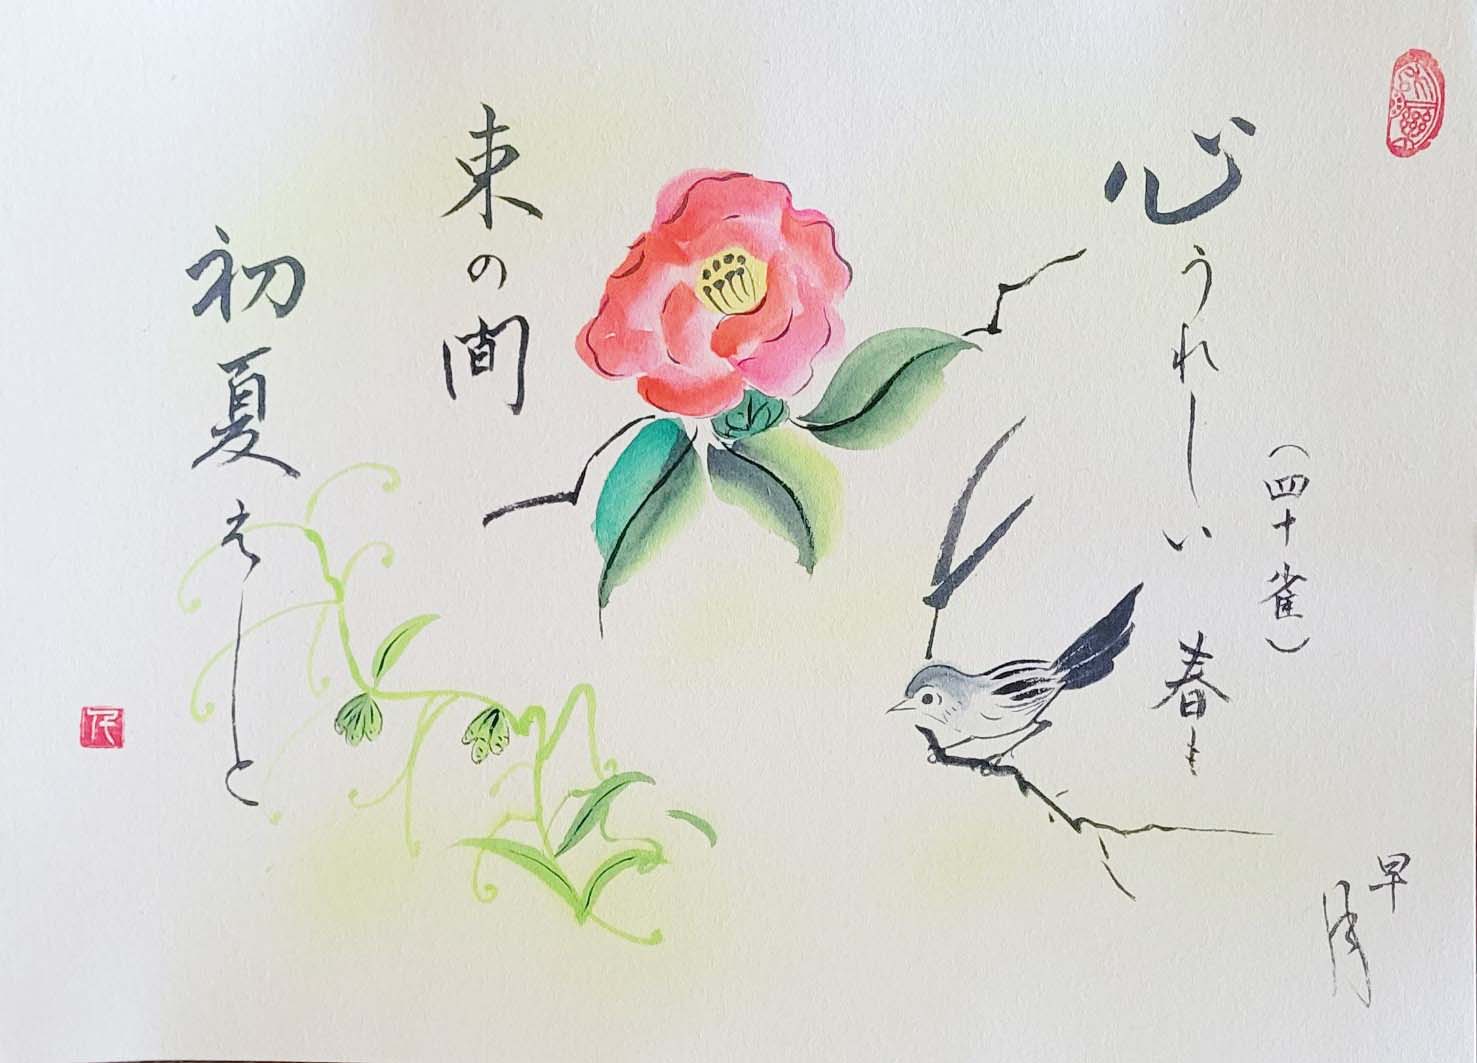 早
（四十雀）
心うれしい春も
束の間
初夏